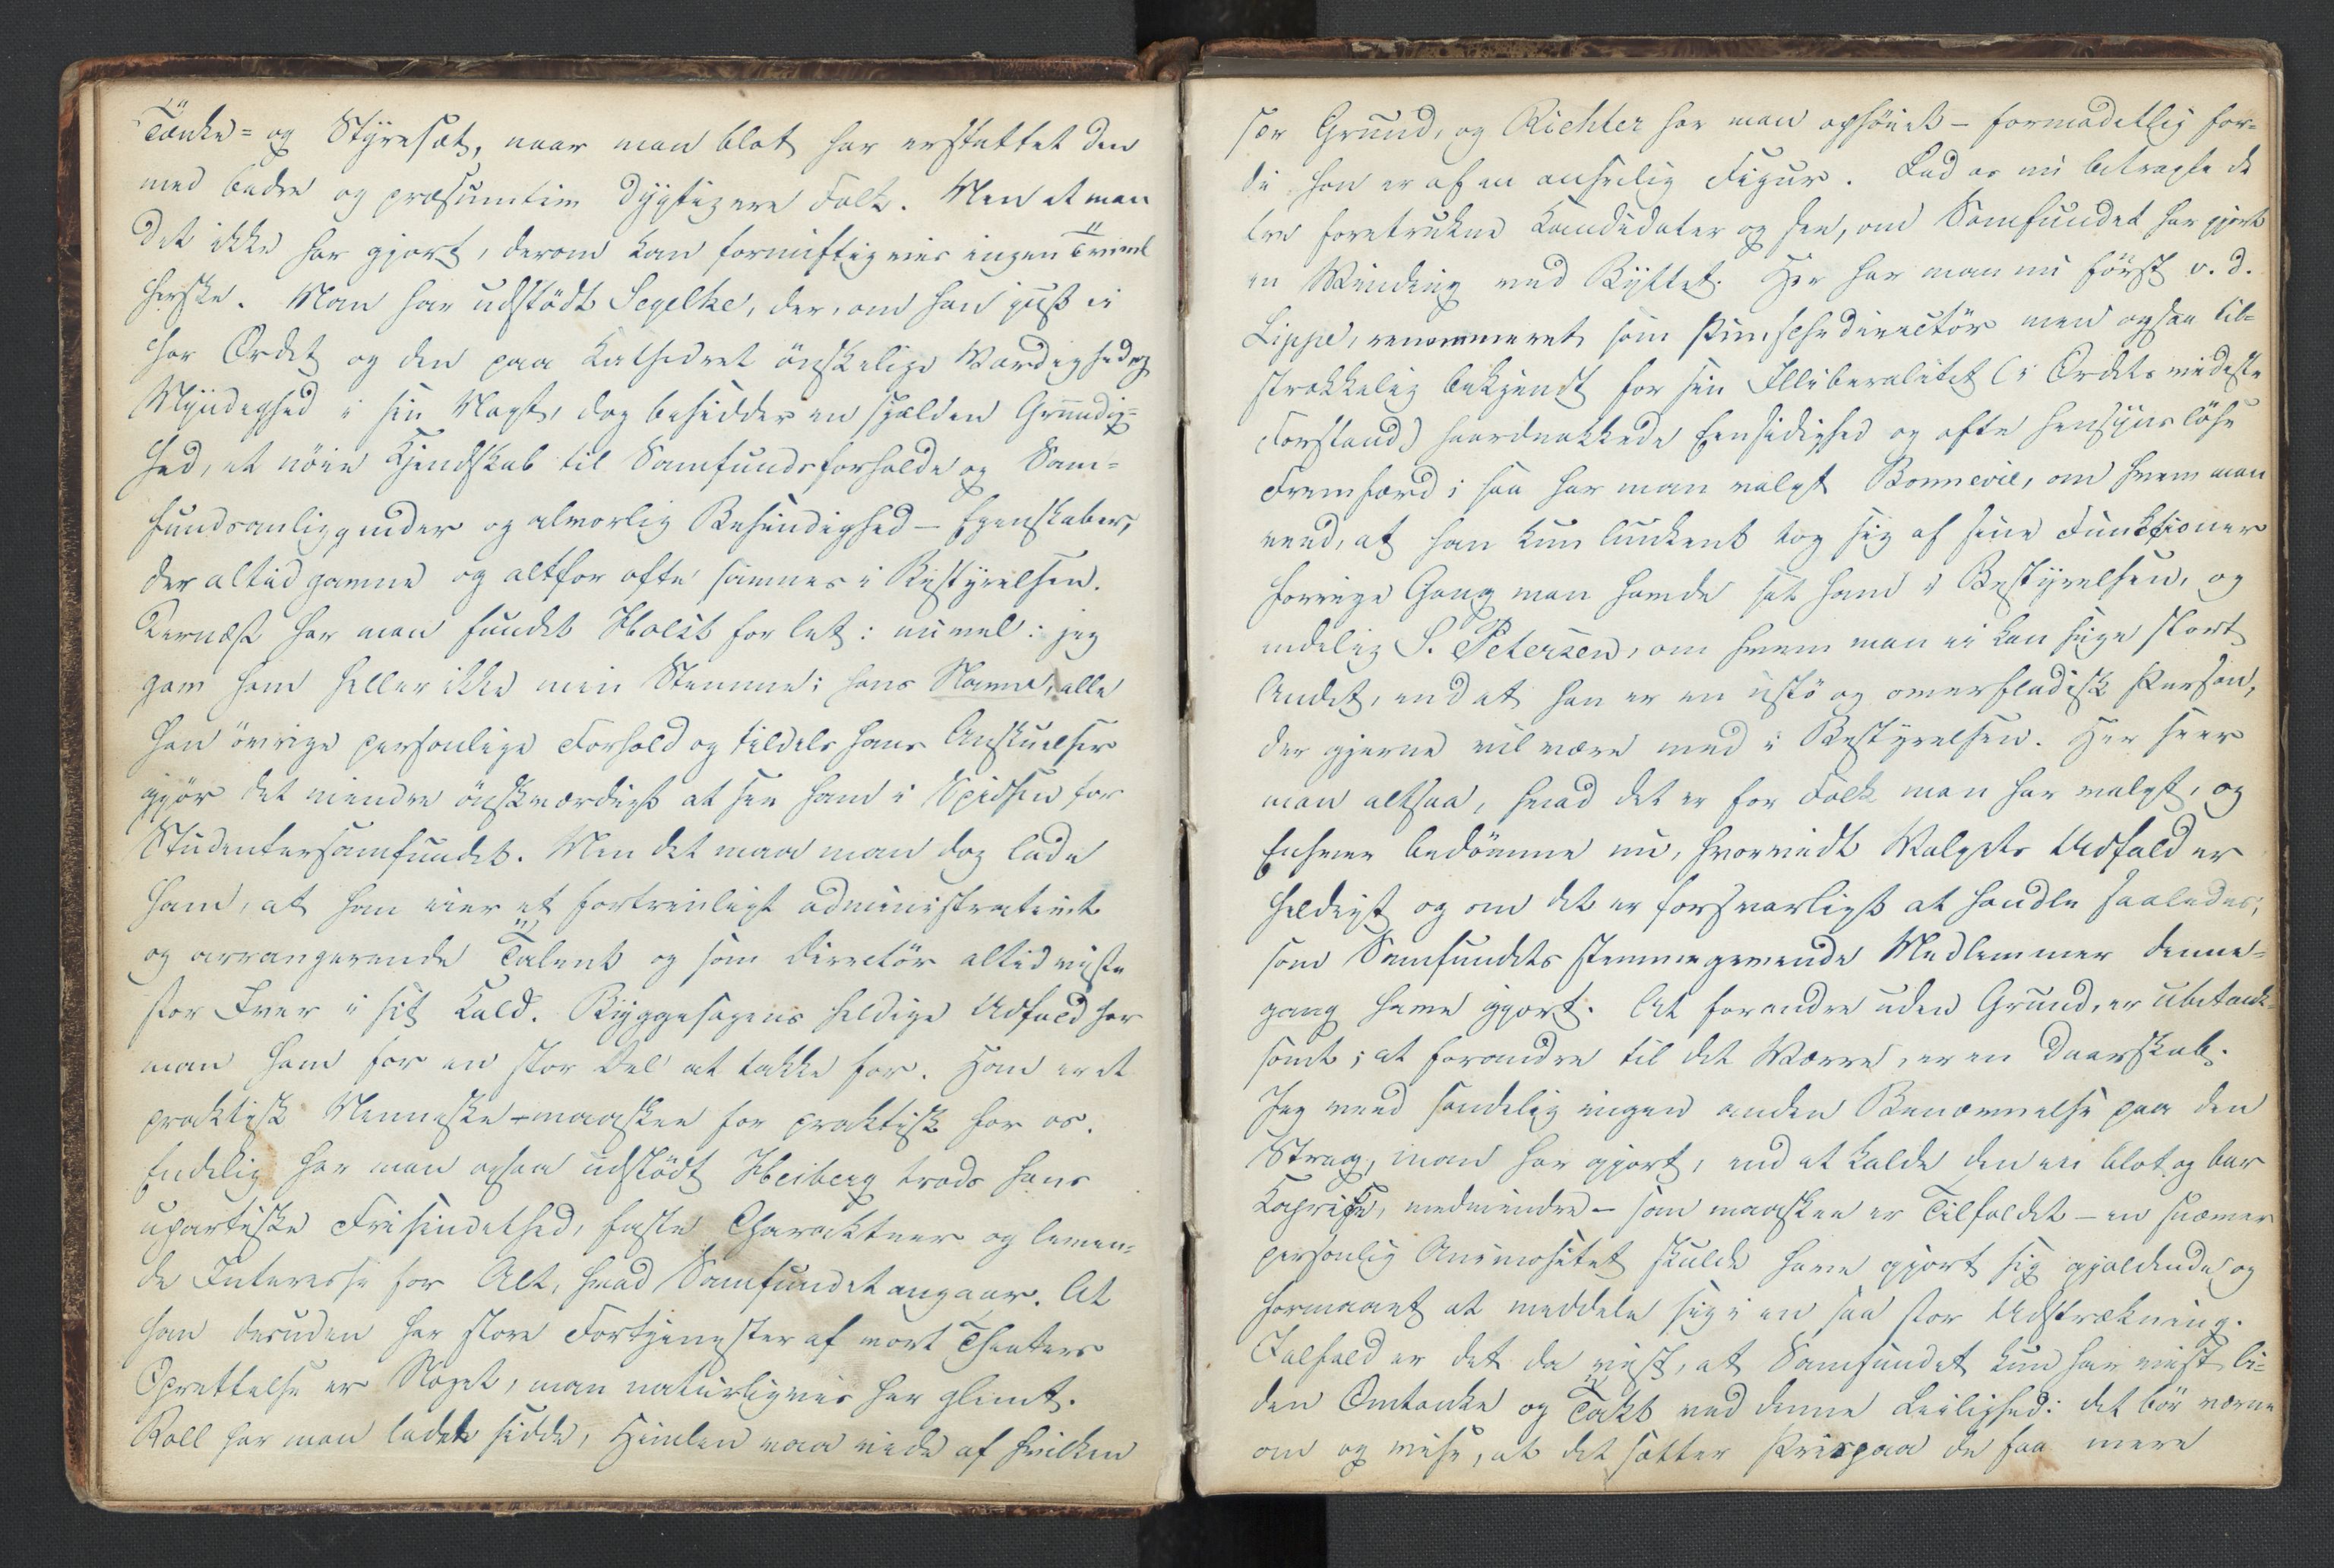 Tænke- og Styresæt, naar man blot har erstattet dem
med bedre og præsumtive dygtigere Folk. Men at man
det ikke har gjort, derom kan fornuftigviis ingen Tvivl
herske. Man har udstödt Segelke, der, om han just ei
har Ordet og den paa Kathedret önskelige Værdighed og
Myndighed i sin Magt, dog besidder en sjælden Grundig-
hed, et nöie Kjendskab til Samfundsforholde og Sam-
fundsanliggender og alvorlig Besindighed – Egenskaber,
der altid gavne og altfor ofte savnes i Bestyrelsen.
Dernæst har man fundet Holst for let: nuvel: jeg
gav ham heller ikke min Stemme; hans Navne, alle
han övrige personlige Forhold og tildels hans Anskuelser
gjör det mindre önskværdigt at see ham i Spidsen for
Studentersamfundet. Men det maa man dog lade
ham, at han eier et fortrinligt administrativt
og arrangerende Talent og som Directör altid viste
stor Iver i sit Kald. Byggesagens heldige Udfald har
man ham for en stor Del at takke for. Han er et
praktisk Menneske – maaskee for praktisk for os.
Endelig har man ogsaa udstödt Heiberg trods hans
upartiske Frisindethed, faste Charakteer og leven-
de Interesse for Alt, hvad Samfundet angaar. At
han desuden har store Fortjenester af vort Theaters
Oprettelse er Noget, man naturligviis har glemt.
Roll har man ladet sidde, Himlen maa vide af hvilken
sær Grund, og Richter har man ophöiet – formodetlig for-
di han er af en anseelig Figur. Lad os nu betragte de
tre foretrukne Kandidater og see, om Samfundet har gjort
en Vinding ved Byttet. Her har man nu först v. d.
Lippe, renommeret som Punschedirectör men ogsaa til-
strækkelig bekjendt for sin Illiberalitet (i Ordets videste
Forstand) haardnakkede Eensidighed og ofte hensynslöse
Fremfærd; saa har man valgt Bonnevie, om hvem man
veed, at han kun lunkent tog sig af sine Funktioner
forrige Gang man havde sat ham i Bestyrelsen, og
endelig S. Petersen, om hvem man ei kan sige stort
Andet, end at han er en ustö og overfladisk Person,
der gjerne vil være med i Bestyrelsen. Her seer
man altsaa, hvad det er for Folk man har valgt, og
Enhver bedömme nu, hvorvidt Valgets Udfald er
heldigt og om det er forsvarligt at handle saaledes,
som Samfundets stemmegivende Medlemmer denne-
gang have gjort. At forandre uden Grund, er ubetænk-
somt; at forandre til det Værre, er en Daarskab.
Jeg veed sandelig ingen anden Benævnelse paa den
Streg, man har gjort, end at kalde den en blot og bar
Kaprise, medmindre – som maaskee er Tilfældet – en snæver
personlig Animositet skulde have gjort sig gjældende og
formaaet at meddele sig i en saa stor Udstrækning.
Ialfald er det da vist, at Samfundet kun har viist li-
den Omtanke og Takt ved denne Leilighed: det bör værne
om og vise, at det sætter Pris paa de faa mere